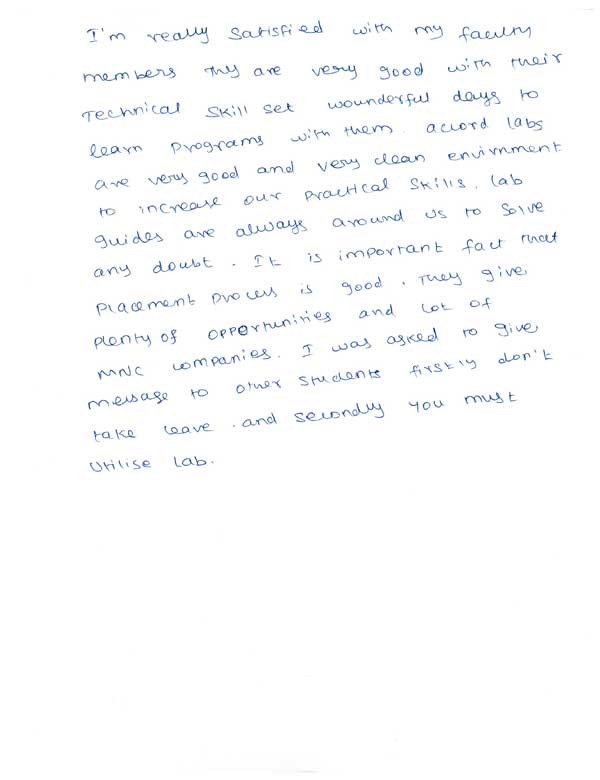 I'm really satisfied with my faculty
members They are very good with their
Technical Skill set wounderful days to
learn Programs with them. accord labs
are very good and very clean envirnment
to increase our Practical Skills. Lab
guides are always around us to solve
any doubt. It is important fact that
Placement process is good. They give
plenty of opportunities and lot of
MNC companies. I was asked to give
message to other students firstly don't
take leave. and secondly you must
Utilise Lab.